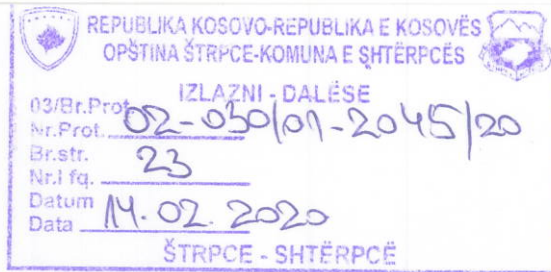 REPUBLIKA KOSOVO-REPUBLIKA E KOSOVËS
OPŠTINA ŠTRPCE-KOMUNA E SHTËRPCËS
IZLAZNI - DALËSE
03/Br.Prot.
Nr.Prot. 02-030/01-2045/20
Br.str.
Nr.I fq. 23
Datum
Data 14.02.2020
ŠTRPCE - SHTËRPCË